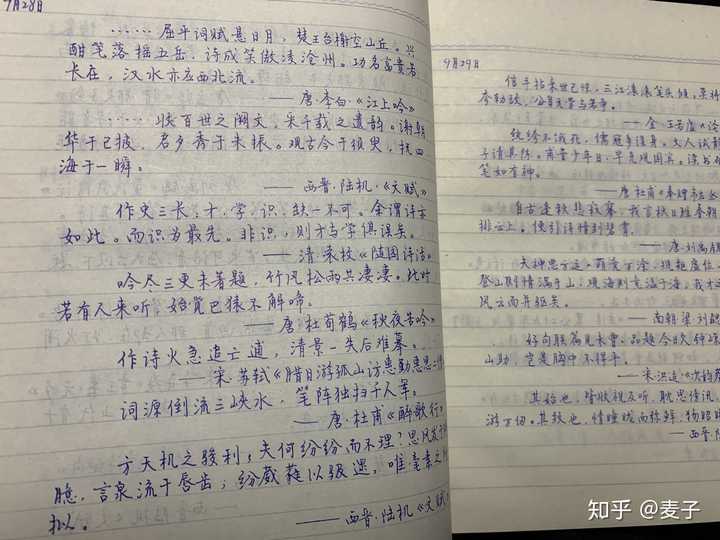 9月28日
……屈平词赋悬日月，楚王台榭空山丘。兴
酣笔落摇五岳，诗成笑傲凌沧州。功名富贵若
长在，汉水亦应西北流。
——唐·李白·《江上吟》
……收百世之阙文，采千载之遗韵。谢朝
华于已披，启夕秀于未振。观古今于须臾，抚四
海于一瞬。
——西晋·陆机·《文赋》
作史三长，才、学、识，缺一不可。余谓诗亦
如此。而识为最先。非识，则才与学俱误矣。
——清·袁枚《随园诗话》
吟尽三更未著题，竹风松雨共凄凄。此时
若有人来听，始觉巴猿不解啼。
——唐·杜荀鹤《秋夜苦吟》
作诗火急追亡逋，清景一失后难摹。
——宋·苏轼《腊日游孤山访惠勤惠思二僧
词源倒流三峡水，笔阵独扫千人军。
——唐·杜甫《醉歌行》
方天机之骏利，夫何纷纷而不理？思风发于
臆，言泉流于唇齿；纷葳蕤以馺遝，唯毫素之所
拟。
——西晋·陆机《文赋》
9月29日
信手拈来世已惊，三江滚滚笔头倾。莫将
李勃敌，公自无劳与若争。
——金·王若虚《论
纨绔不饿死，儒冠多误身。丈人试静
子请具陈。甫昔少年日，早充观国宾。读书
笔如有神。
——唐杜甫《奉赠韦左丞
自古逢秋悲寂寥，我言秋日胜春朝
排云上，便引诗情到碧霄。
——唐·刘禹锡
夫神思方运，万涂竞萌，规矩虚位
登山则情满于山；观海则意溢于海，我才
风云而并驱矣。
——南朝·梁·刘勰
山助，岂是胸中不得平。
——宋洪适《次韵
其始也，皆收视反听，耽思傍讯，
游万仞。其致也，情曈昽而弥鲜，物昭晰
——西晋·陆
知乎 @麦子